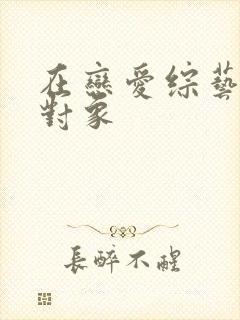 在戀愛綜藝
對象
長醉不醒